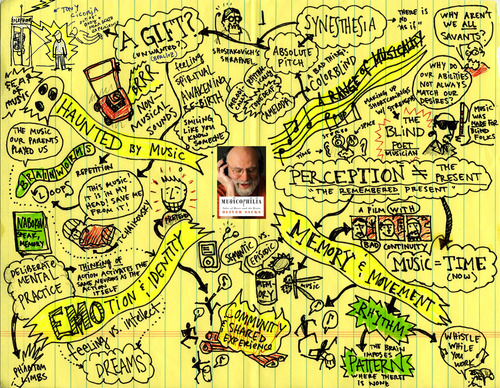 TONY
CICORIA
A GIFT?
(UNWANTED)
SHOSTAKOVICH'S
SHRAPNEL
SYNESTHESIA
THERE IS
NO
"AS IF"
WHY AREN'T
WE ALL
SAVANTS?
ABSOLUTE
PITCH
A BAD THING?
COLORBLIND
A RANGE OF MUSICALITY
AMUSIA
WHY DO
OUR ABILITIES
NOT ALWAYS
MATCH OUR
DESIRES?
FEAR
OF
MUSIC
BRRR
NON-
MUSICAL
SOUNDS
FEELING
SPIRITUAL
AWAKENING
RE-BIRTH
SMILING
LIKE YOU
KNOW
SOMEONE
HAUNTED BY MUSIC
THE MUSIC
OUR PARENTS
PLAYED US
BRAINWORMS
REPETITION
LOOPS
THIS MUSIC,
IT IS IN MY
HEAD! SAVE
ME FROM IT!
TIME
SPACE
THE
BLIND
POET
MUSICIAN
MUSIC
WAS MADE
FOR
BLIND
FOLKS
MUSICOPHILIA
OLIVER SACKS
PERCEPTION ≠ THE
PRESENT
"THE REMEMBERED PRESENT"
A FILM WITH
BAD CONTINUITY
MUSIC = TIME
(NOW)
NABOKOV
SPEAK,
MEMORY
DELIBERATE
MENTAL
PRACTICE
THINKING OF
ACTION ACTIVATES THE
SAME NEURONS AS THE
ACTION
ITSELF
EMOTION & IDENTITY
FEELING VS. INTELLECT
PHANTOM
LIMBS
DREAMS
SEMANTIC
VS.
EPISODIC
MEMORY
MUSIC
COMMUNITY
& SHARED
EXPERIENCE
MEMORY & MOVEMENT
RHYTHM
THE BRAIN
IMPOSES
PATTERN
WHERE THERE
IS NONE
WHISTLE
WHILE
YOU
WORK